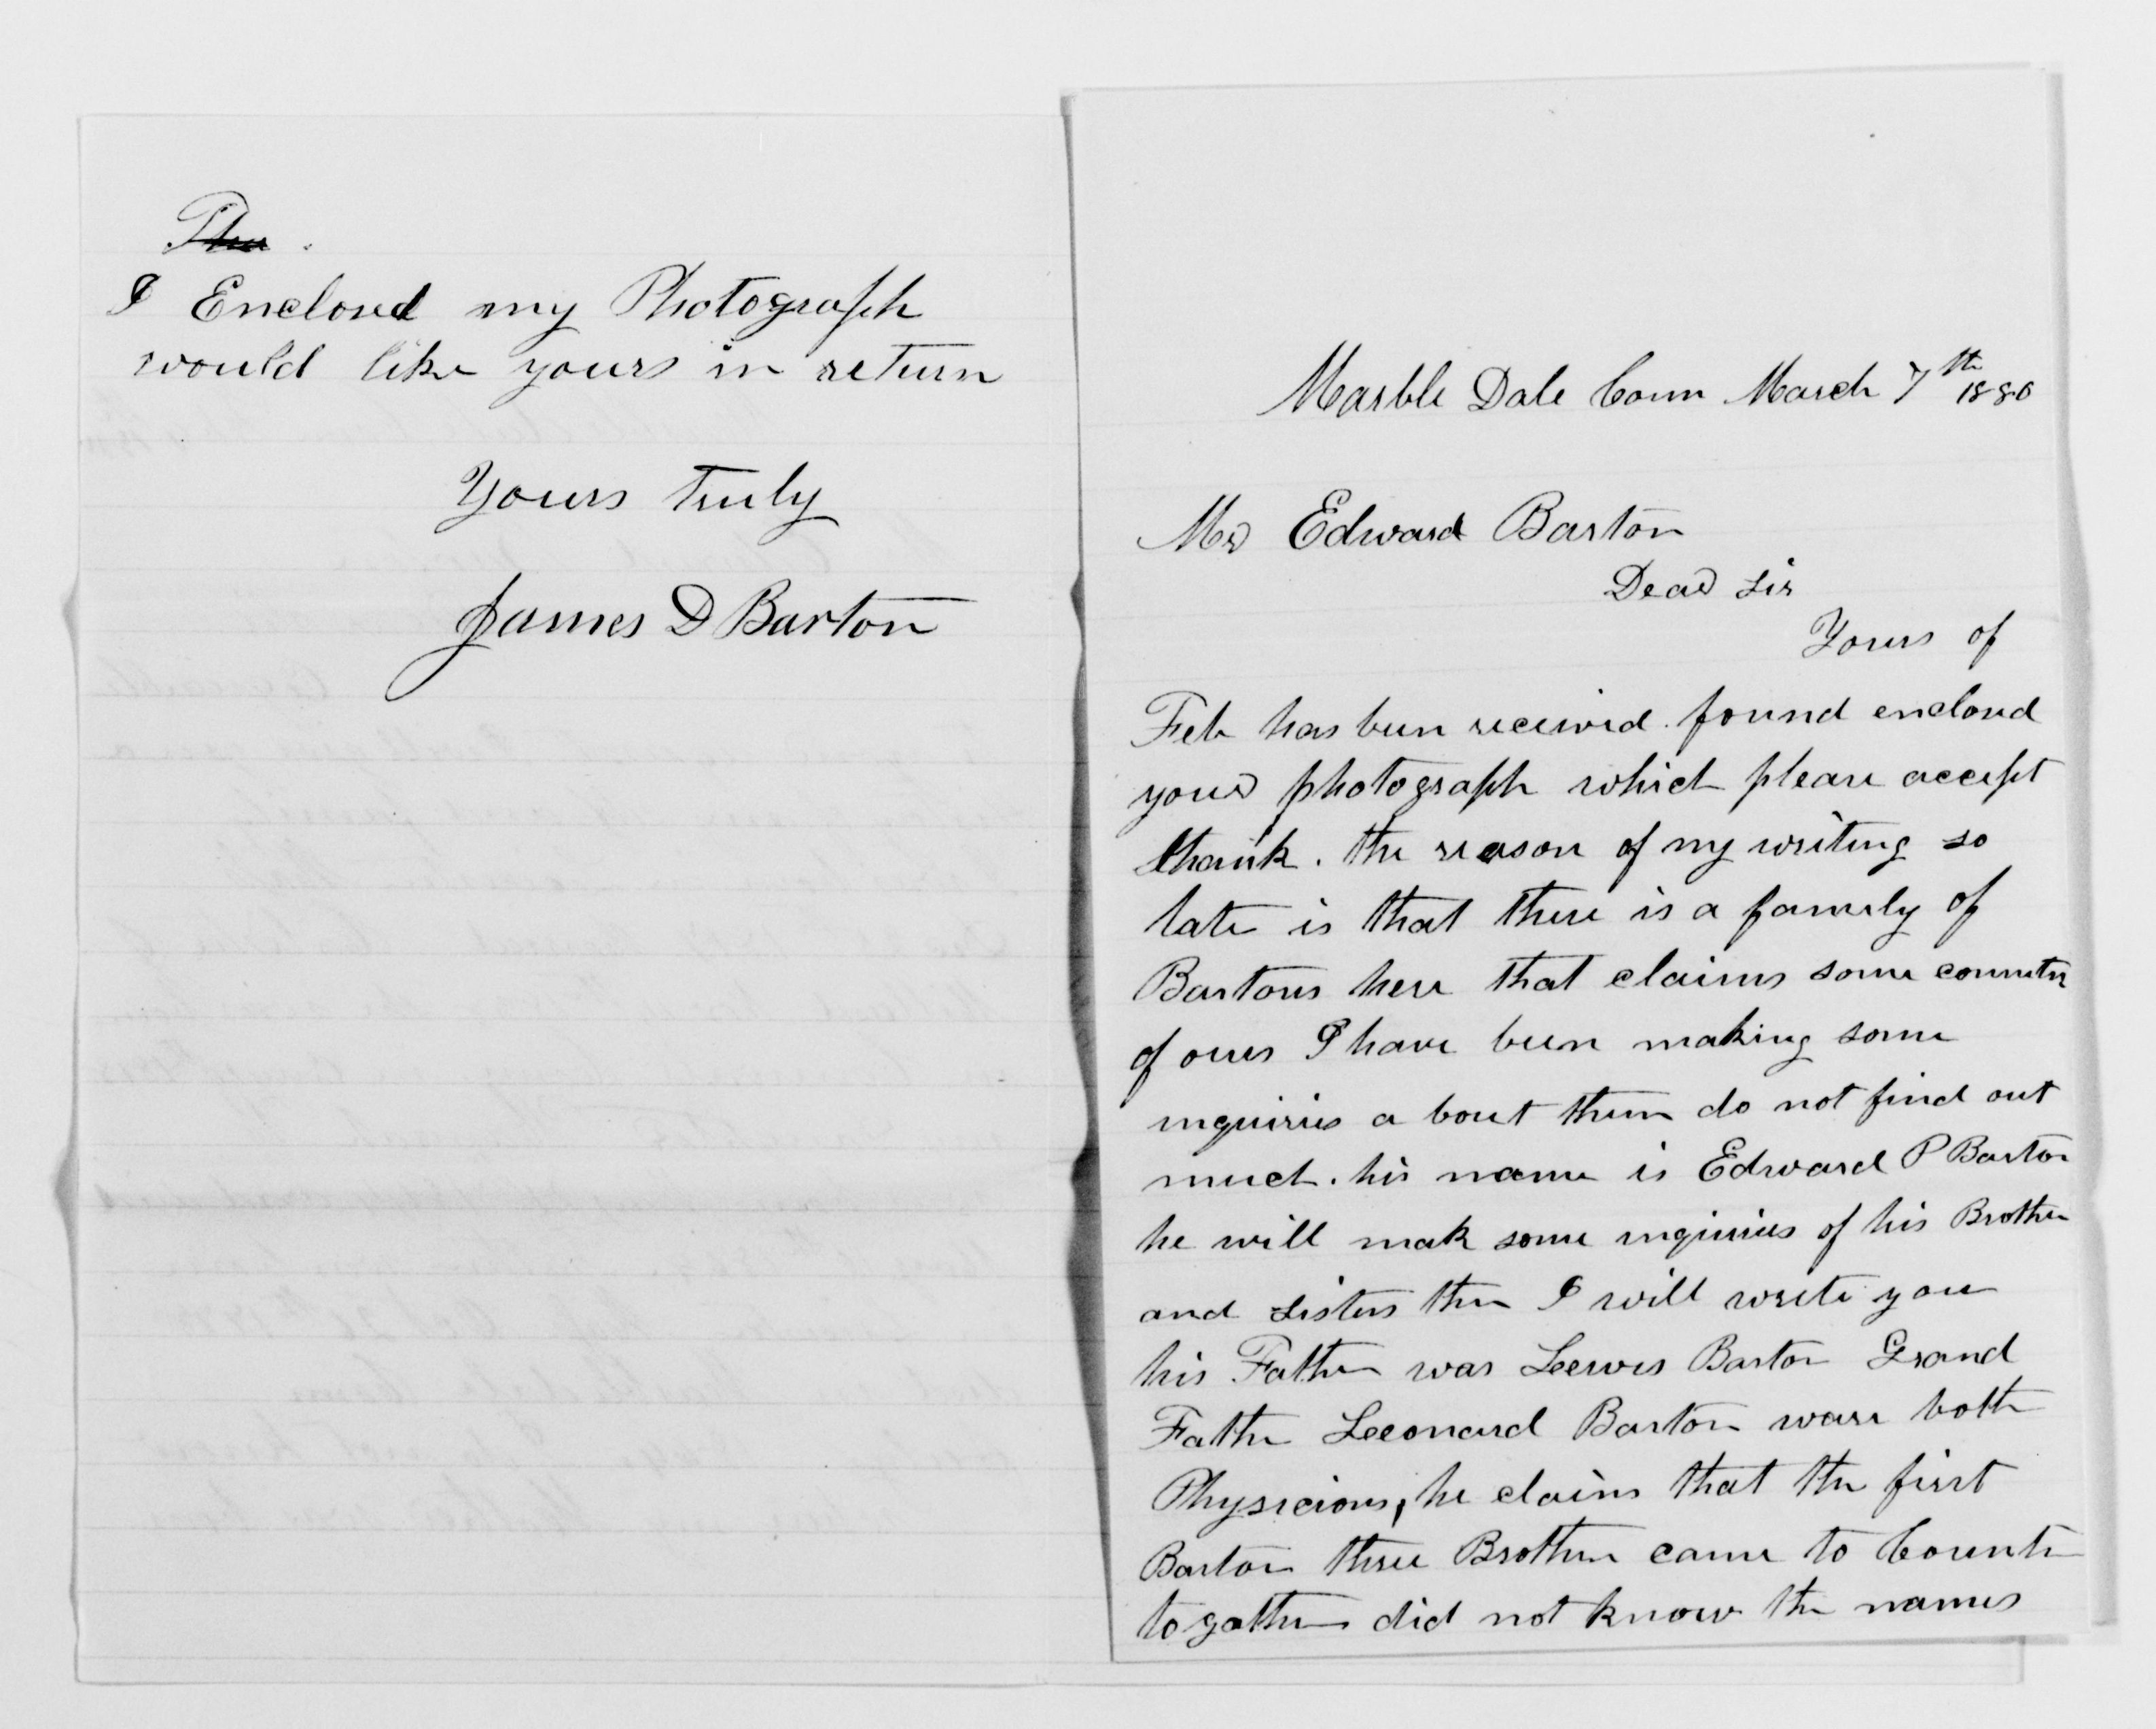 The .
I Enclosed my Photograph
would like yours in return
Yours Truly
James D Barton
Marble Dale Conn March 7th 1880
Mr Edward Barton
Dear Sir
Yours of
Feb has been received. found enclosed
your photograph which please accept
thank. the reason of my writing so
late is that there is a family of
Bartons here that claims some
of ours I have been making some
inquiries a bout them do not find out
much. his name is Edward P Barton
he will mak some inquiries of his Brother
and Sisters then I will write you
his Father was Leewis Barton Grand
Father Leeonard Barton ware both
Physicions, he claims that the first
Barton three Brothers came to
to gather did not know the names